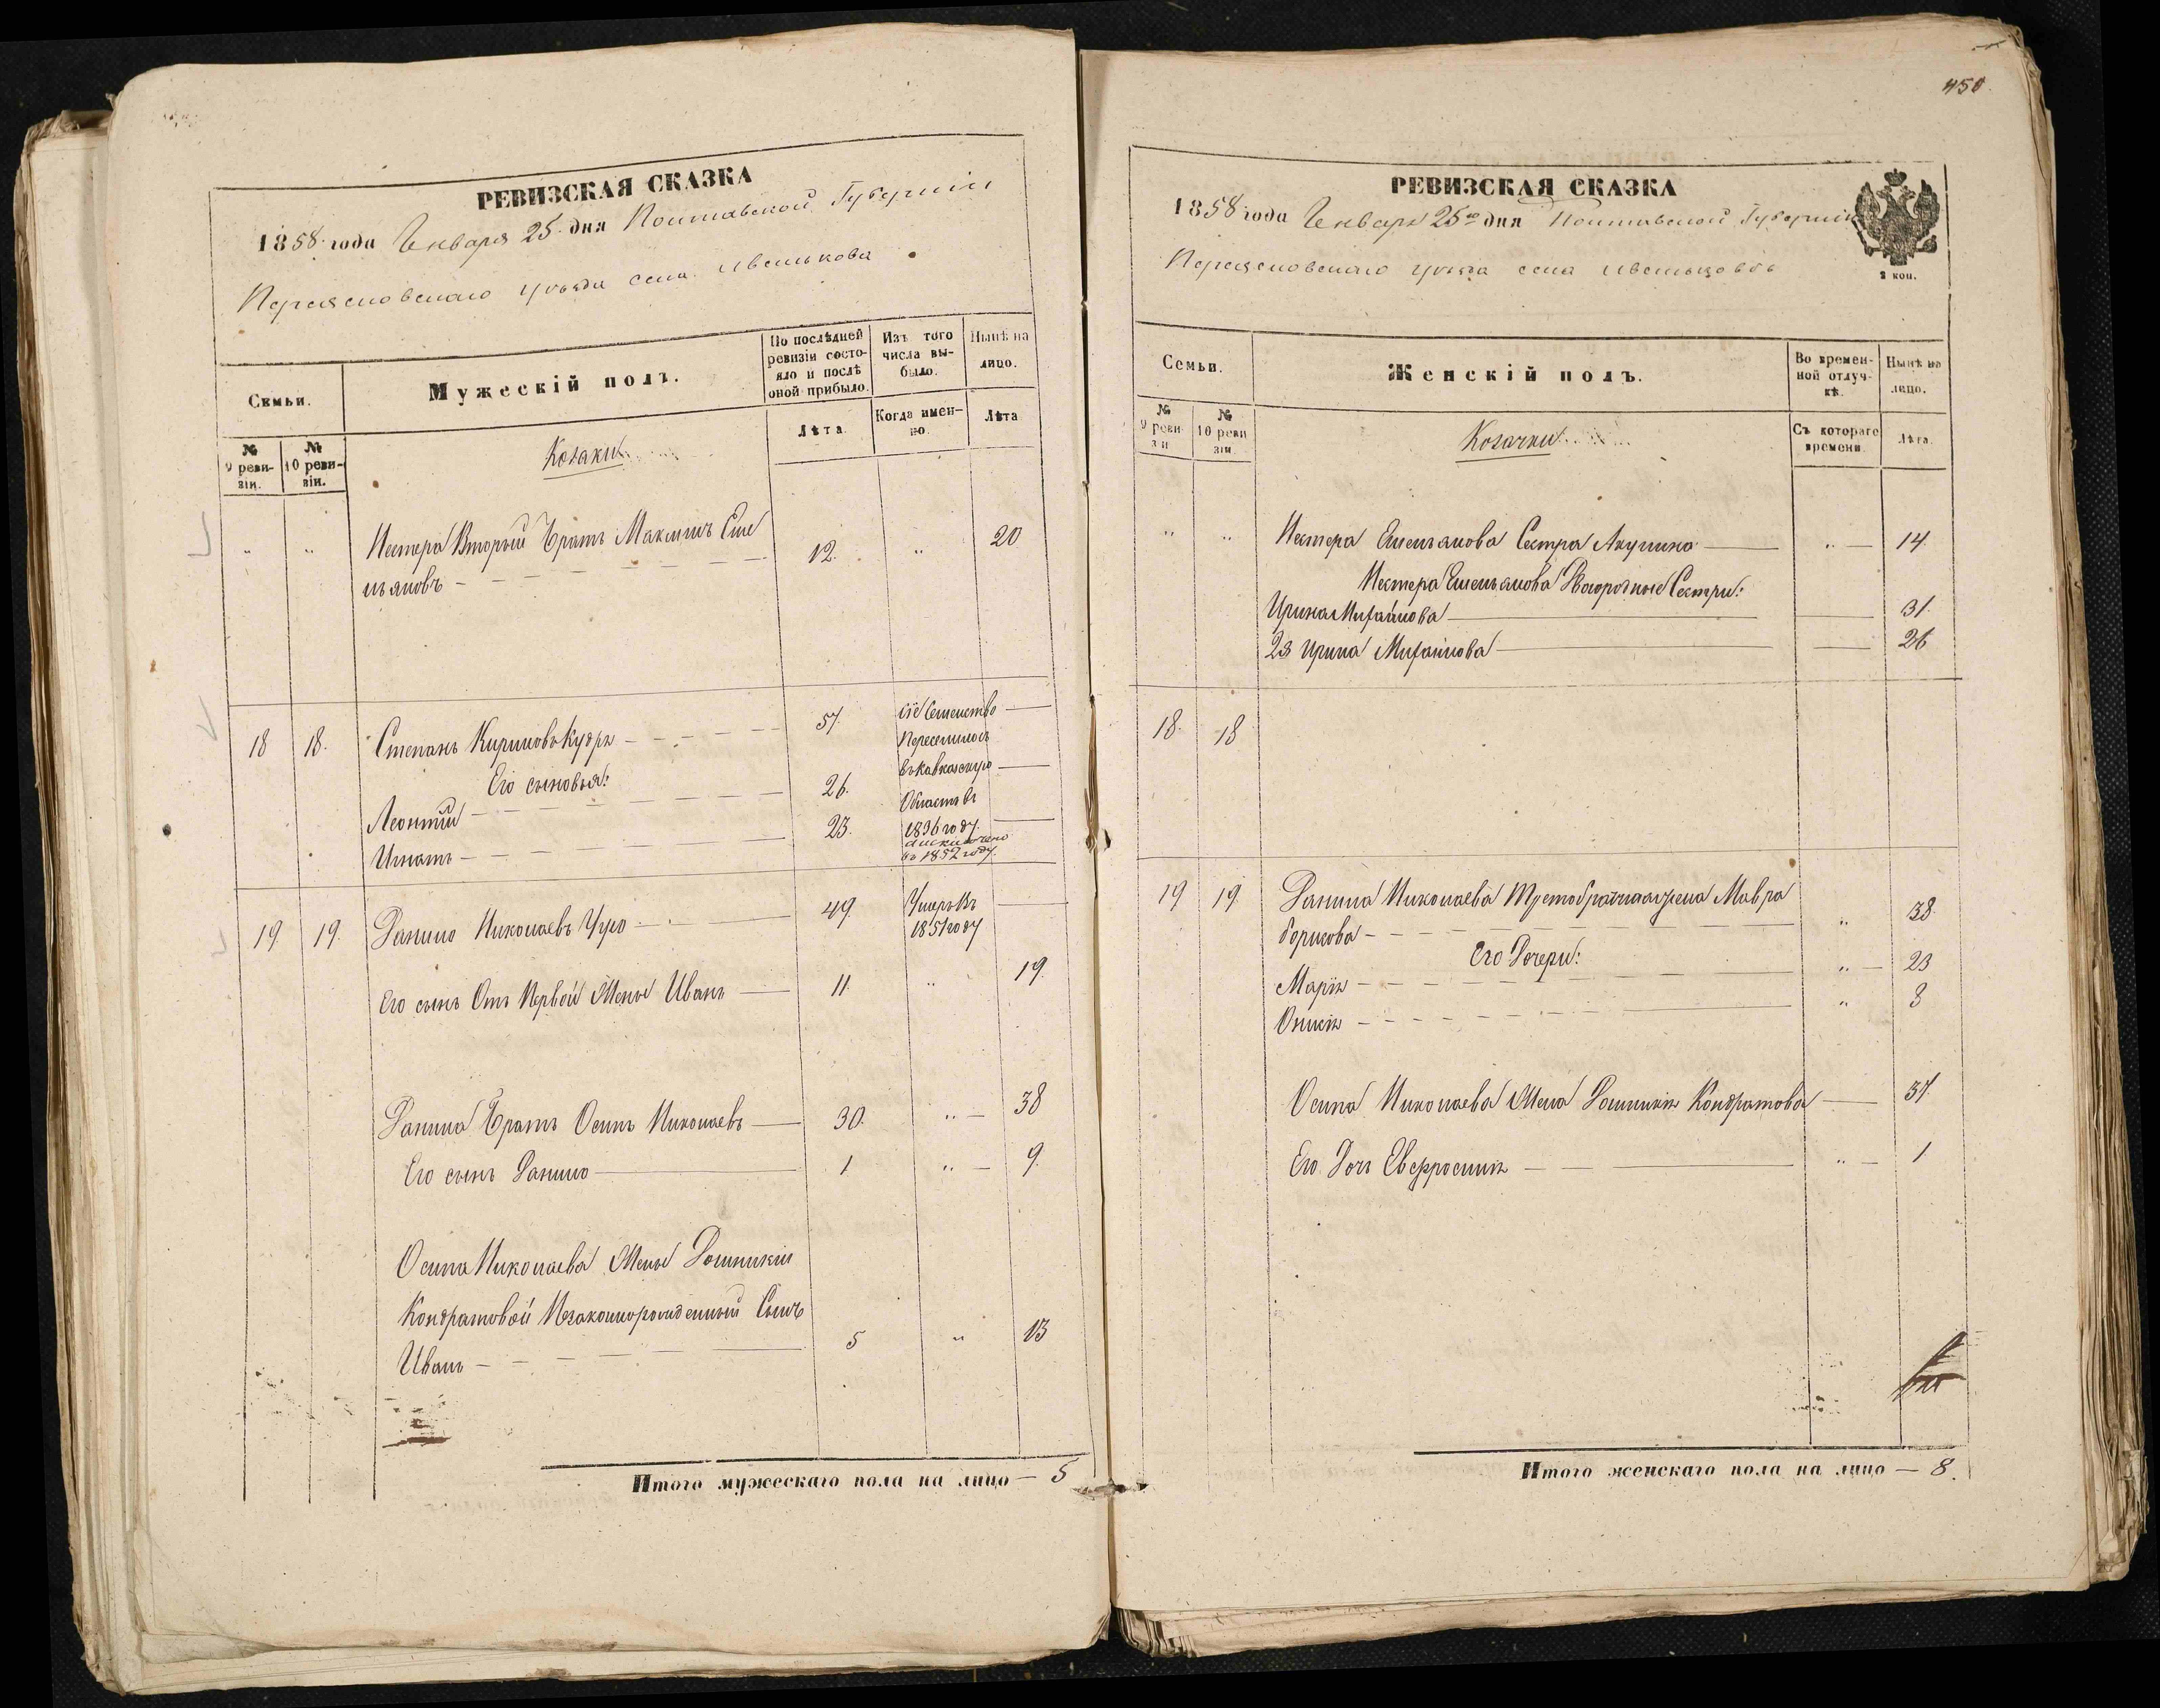 РЕВИЗСКАЯ СКАЗКА
1858 года Генваря 25 дня Полтавской Губерніи
Переясловскаго уѣзда села Ивенькова
Семьи.
Мужескій полъ.
По послѣдней ревизіи состояло и послѣ оной прибыло.
Изъ того числа выбыло.
Нынѣ на лицо.
№ 9 ревизіи.
№ 10 ревизіи.
Козаки
Лѣта
Когда именно.
Лѣта
" " Нестера Вторый братъ Максимъ Еме
льяновъ 12. " 20
18 18. Степанъ Кириловъ Кудря 57.
сіе Семейство
Переселилось
въ Кавказскую
Область въ
1836 году.
а исключено
въ 1852 году.
Его сыновья:
Леонтій 26.
Игнатъ 23.
19. 19. Данило Николаевъ 49 Умеръ въ
1851 году
Его сынъ Отъ Первой Жены Иванъ 11. " 19.
Данила братъ Осипъ Николаевъ 30. " 38
Его сынъ Данило 1 " 9.
Осипа Николаева Жены Домникіи
Кондратовой Незаконнорожденный Сынъ
Иванъ 5 " 13
Итого мужескаго пола на лицо — 5
450.
РЕВИЗСКАЯ СКАЗКА
1858 года Генваря 25го дня Полтавской Губерніи
Переясловскаго уѣзда села
2 коп.
Семьи.
Женскій полъ.
Во временной отлучкѣ.
Нынѣ на лицо.
№ 9 ревизіи
№ 10 ревизіи
Козачки
Съ котораго времени
Лѣта.
" " Нестера Емельянова Сестра Акулина " 14.
Нестера Емельянова Двоюродные Сестры:
Ирина Михайлова 31.
2я Ирина Михайлова 26
18. 18
19 19. Данила Николаева Третобрачная жена Мавра
Борисова " 38.
Его Дочери:
Марія " 23
Оникія " 8
Осипа Николаева Жена Домникія Кондратова 37.
Его Дочь Евфросинія " 1
Итого женскаго пола на лицо — 8.